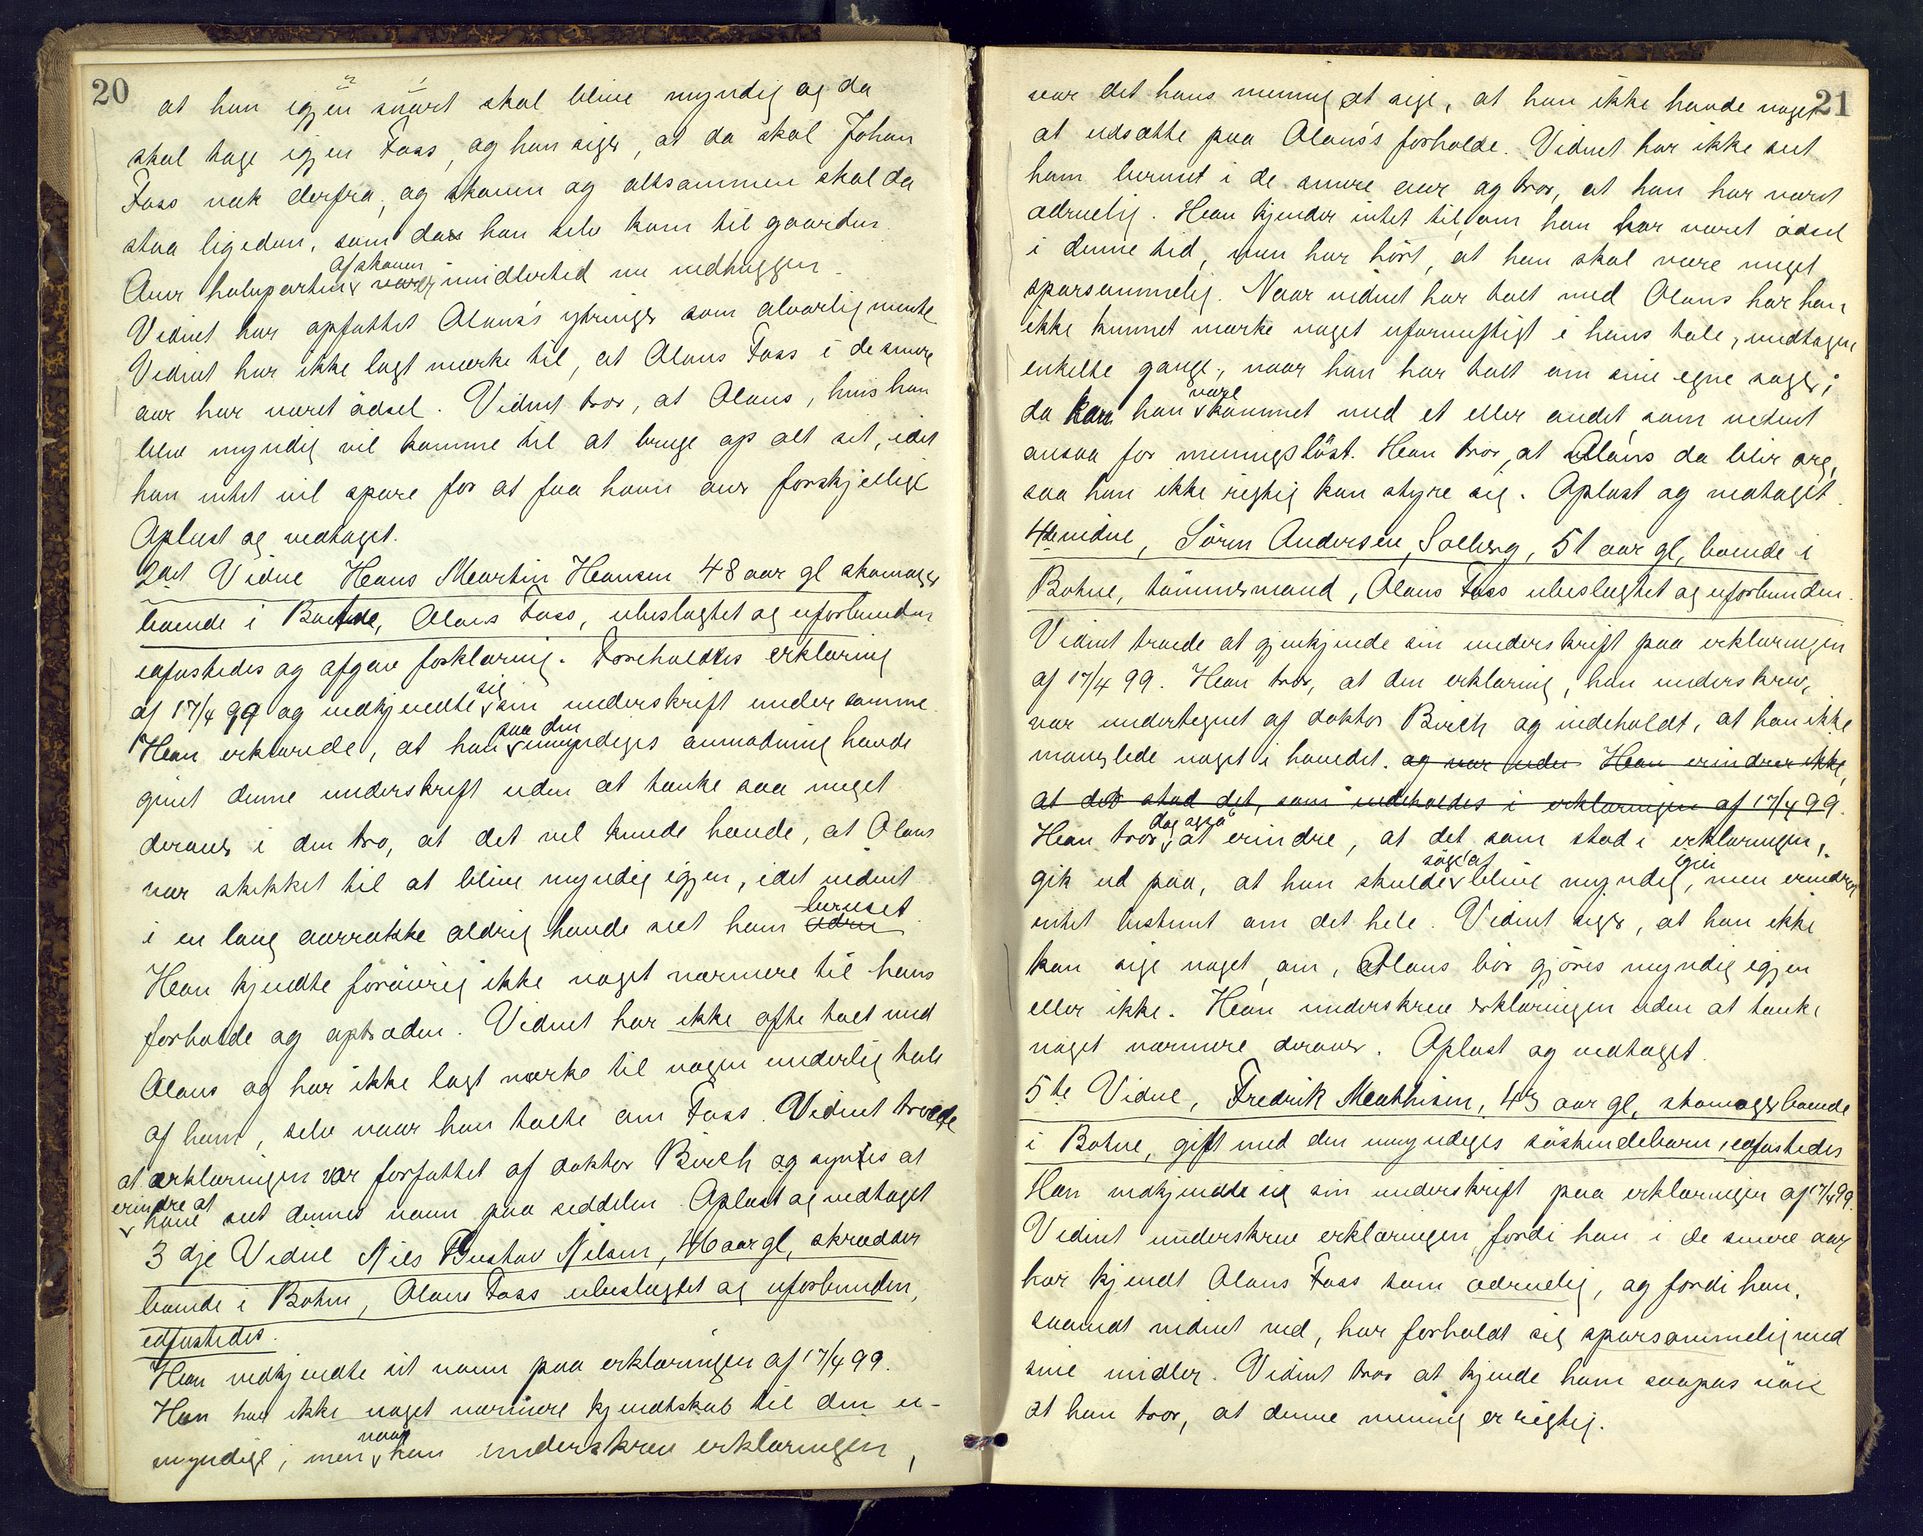 20
at han igjen snart skal blive myndig og da
skal tage igjen Foss, og han siger, at da skal Johan
Foss væk derfra, og skoven og altsammen skal da
staa ligedan, som da han selv kom til gaarden
Over halvparten af skoven imidlertid nu nedhuggen.
Vidnet har opfattet Olaus's ytringer som alvorlig mente
Vidnet har ikke lagt mærke til, at Olaus Foss i de senere
aar har været ødsel. Vidnet tror, at Olaus, hvis han
blev myndig vil komme til at bruge op alt sit, idet
han intet vil spare for at faa ham over forskjellige
Oplæst og vedtaget.
2det Vidne Hans Martin Hansen 48 aar gl skomager
boende i Botne, Olaus Foss, ubeslægtet og uforbunden
edfæstedes og afgav forklaring. Foreholdtes erklæring
af 17/4 99 og vedkjendte sig sin underskrift under samme
Han erklærede, at han paa den umyndiges anmodning havde
givet denne underskrift uden at tænke saa meget
derover i den tro, at det vel kunde hænde, at Olaus
var skikket til at blive myndig igjen, idet vidnet
i en lang aarrække aldrig havde seet ham beruset.
Han kjendte forøvrig ikke noget nærmere til hans
forholde og optræden. Vidnet har ikke ofte talt med
Olaus og har ikke lagt mærke til nogen underlig tale
af ham, selv naar han talte om Foss. Vidnet troede
at erklæringen var forfattet af doktor Birch og syntes at
erindre at have seet dennes navn paa seddelen. Oplæst og vedtaget
3dje Vidne Nils Gustav Nilsen, 46 aar gl, skrædder
boende i Botne, Olaus Foss ubeslægtet og uforbunden,
edfæstedes.
Han vedkjendte sit navn paa erklæringen af 17/4 99.
Han har ikke noget nærmere kjendskab til den u-
myndige, men naar han underskrev erklæringen,
21
var det hans mening at sige, at han ikke havde noget
at udsætte paa Olaus's forholde. Vidnet har ikke seet
ham beruset i de senere aar og tror, at han har været
ædruelig. Han kjender intet til, om han har været ødsel
i denne tid, men har hørt, at han skal være meget
sparsommelig. Naar vidnet har talt med Olaus har han
ikke kunnet mærke noget ufornuftigt i hans tale, undtagen
enkelte gange, naar han har talt om sine egne sager;
da kan han være kommet med et eller andet, som vidnet
ansaa for meningsløst. Han tror, at Olaus da blir arg,
saa han ikke rigtig kan styre sig. Oplæst og vedtaget.
4de vidne, Søren Andersen Solberg, 51 aar gl, boende i
Botne, tømmermand, Olaus Foss ubeslægtet og uforbunden.
Vidnet troede at gjenkjende sin underskrift paa erklæringen
af 17/4 99. Han tror, at den erklæring, han underskrev,
var undertegnet af doktor Birch og indeholdt, at han ikke
manglede noget i hovedet. og var uden Han erindrer ikke,
at det stod det, som indeholdes i erklæringen af 17/4 99.
Han tror dog ogsaa at erindre, at det som stod i erklæringen,
gik ud paa, at han skulde søge at blive myndig igjen, men erindrer
intet bestemt om det hele. Vidnet siger, at han ikke
kan sige noget om, Olaus bør gjøres myndig igjen
eller ikke. Han underskrev erklæringen uden at tænke
noget nærmere derover. Oplæst og vedtaget.
5te Vidne, Fredrik Mathisen, 43 aar gl, skomager boende
i Botne, gift med den umyndiges søskendebarn, edfæstedes
Han vedkjendte sig sin underskrift paa erklæringen af 17/4 99.
Vidnet underskrev erklæringen, fordi han i de senere aar
har kjendt Olaus Foss som ædruelig, og fordi han,
saavidt vidnet ved, har forholdt sig sparsommelig med
sine midler. Vidnet tror at kjende ham saapas nøie
at han tror, at denne mening er rigtig.